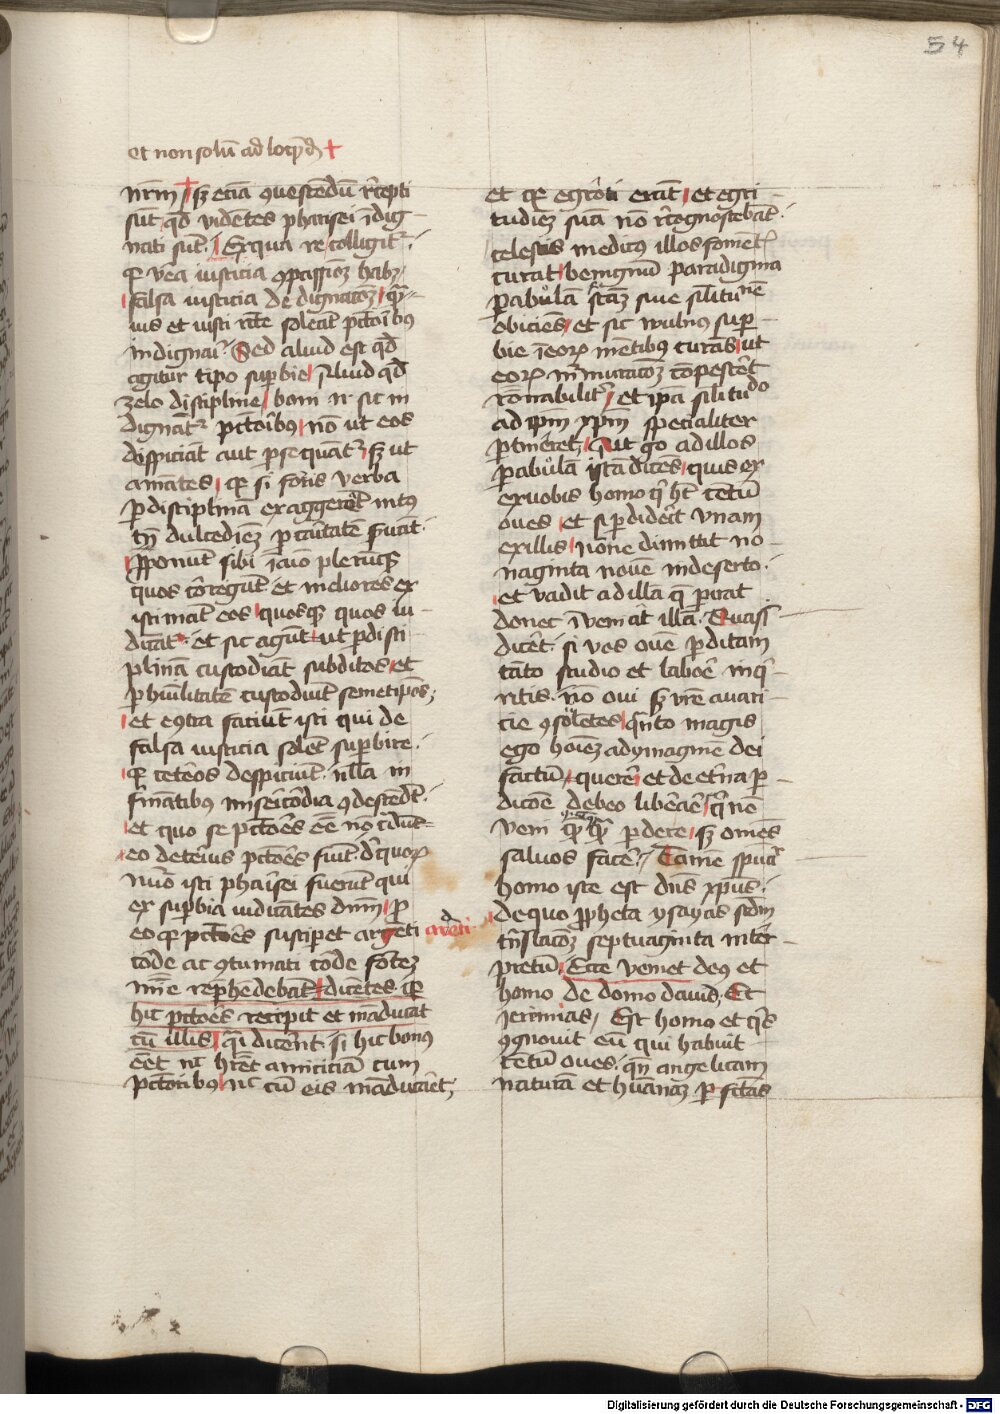 54
et non solu ad loq̄nd +
nr̄m sꝫ etia ꝯuescēdū rēcepti
sūt qd̄ vidētes pharisei īdig
nati sūt. Ex qua re colligitr
qꝫ ve᷑a iusticia ꝯpassioeꝫ habꝫ
falsa iusticia de dignatōeꝫ qm̄
uis et iusti rc̄te soleāt pctōribus
indignari. Sed aliud est qd̄
agitur tipo suꝑbie aliud qd̄
zelo discipline boni n̄ sic in
dignāt᷑ pctōribus nō ut eos
despiciāt aut ꝑsequāt᷑ sꝫ ut
amātes qꝫ si foris verba
ꝑ disciplinā exaggerāt intus
tn̄ dulcediēꝫ ꝑ caritatē ẜuāt.
p̄ponūt sibi ī aīo plerūqꝫ
quos corrigūt et meliores ex
istimāt eos quosqꝫ quos iu
dicāt. et sic agūt ut ꝑ disci
plinā custodiāt subditos et
ꝑ hūilitatē custodiūt semetipos;
et eꝯtra faciūt isti qui de
falsa iusticia solēt suꝑbire.
qꝫ cetēos despiciūt nlla in
firmātibus misericordia ꝯdescēdūt.
et quo se pctōres eē nō credūt
eo deterius pctōres fiūt. de quoꝝ
nūo isti pharisei fuerūt qui
ex suꝑbia iudicātes dn̄m ꝑ
eo qꝫ pctōres susciꝑet argēti
ardēti
corde ac ꝯtumati corde fontē
mīe rep̄hēdebāt dicētes. qꝫ
hic pctōres recipit et māducat
cū illis q̄i dicerēt. si hic bonus
eēt nc̄ hrēt amiciciā cum
pctōribus nc̄ cū eis māducāret;
et qꝫ egroti erāt et egri
tudinē suā nō recognoscebāt.
celestis medicus illos fomēt
curat benignū paradigma
ꝑabulā istaꝫ siue silitu nē
obiciēs et sic wulnus suꝑ
bie ī eoꝝ mētibus curās ut
eoꝝ murmuratōeꝫ cōpescēt
rōnabilit᷑ et ipā silitu do
ad ipm̄ xp̄m specialiter
ꝑtinēret. Ait go ad illos
ꝑabulā ista dicēs quis ex
ex uobis homo q̄ hꝫ centū
oues et si ꝑdiderit vnam
ex illis nōne dimittit no
naginta nouē in deserto.
et vadit ad illā q̄ ꝑierat
donec īueniat illā. Quasi
dicēt. si vos ouē ꝑditam
tāto studio et laborē inq̄
ritis. nō oui sꝫ vrē auari
cie ꝯsoletes quāto magis
ego hoīeꝫ ad ymaginē dei
factū querē et de etīna ꝑ
dicōe debeo liberāre q̄ nō
veni qꝫ qꝫ ꝑdere sꝫ omēs
saluos facē. Tamē spūalr
homo iste est dn̄s xp̄us.
de quo p̄pheta ysayas scdm̄
trn̄slacōꝫ septuaginta inter
pretū. Ecce veniet deus et
homo de domo dauid. Et
jeremias. Est homo et q̄s
ꝯgnouit eū qui habuit
centū oues. qm̄ angelicam
naturā et hūanaꝫ ꝑ sctās
Digitalisierung gefördert durch die Deutsche Forschungsgemeinschaft - DFG